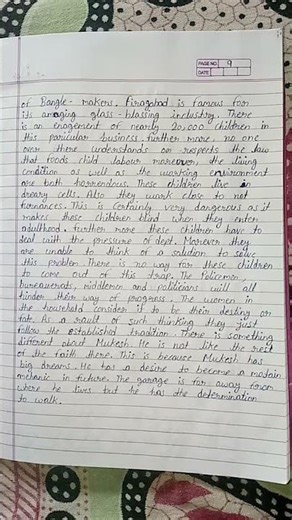 PAGE NO. 9
DATE
of Bangle-makers. Firozabad is famous for
its amazing glass-blassing industry. There
is an enagement of nearly 20,000 children in
this particular business. further more, no one
over there understands or respects the law
that foods child labour moreover, the living
condition as well as the working environment
are both horrendous. These children live in
dreary cells. Also they work close to hot
furnances. This is certainly very dangerous as it
makes these children blind when they enter
adulthood. further more these children have to
deal with the pressure of dept. Morever they
are unable to think of a solution to solve
this problem There is no way for these children
to come out of this trap. The policemen,
bureaucrats, middlemen and politicians will all
hinder their way of progress. The women in
the household consider it to be their destiny or
fate. As a result of such thinking they just
follow the established tradition. There is something
different about Mukesh. He is not like the rest
of the faith there. This is because Mukesh has
big dreams. He has a desire to become a
mechanic in future. The garage is far away from
where he lives but he has the determination
to walk.